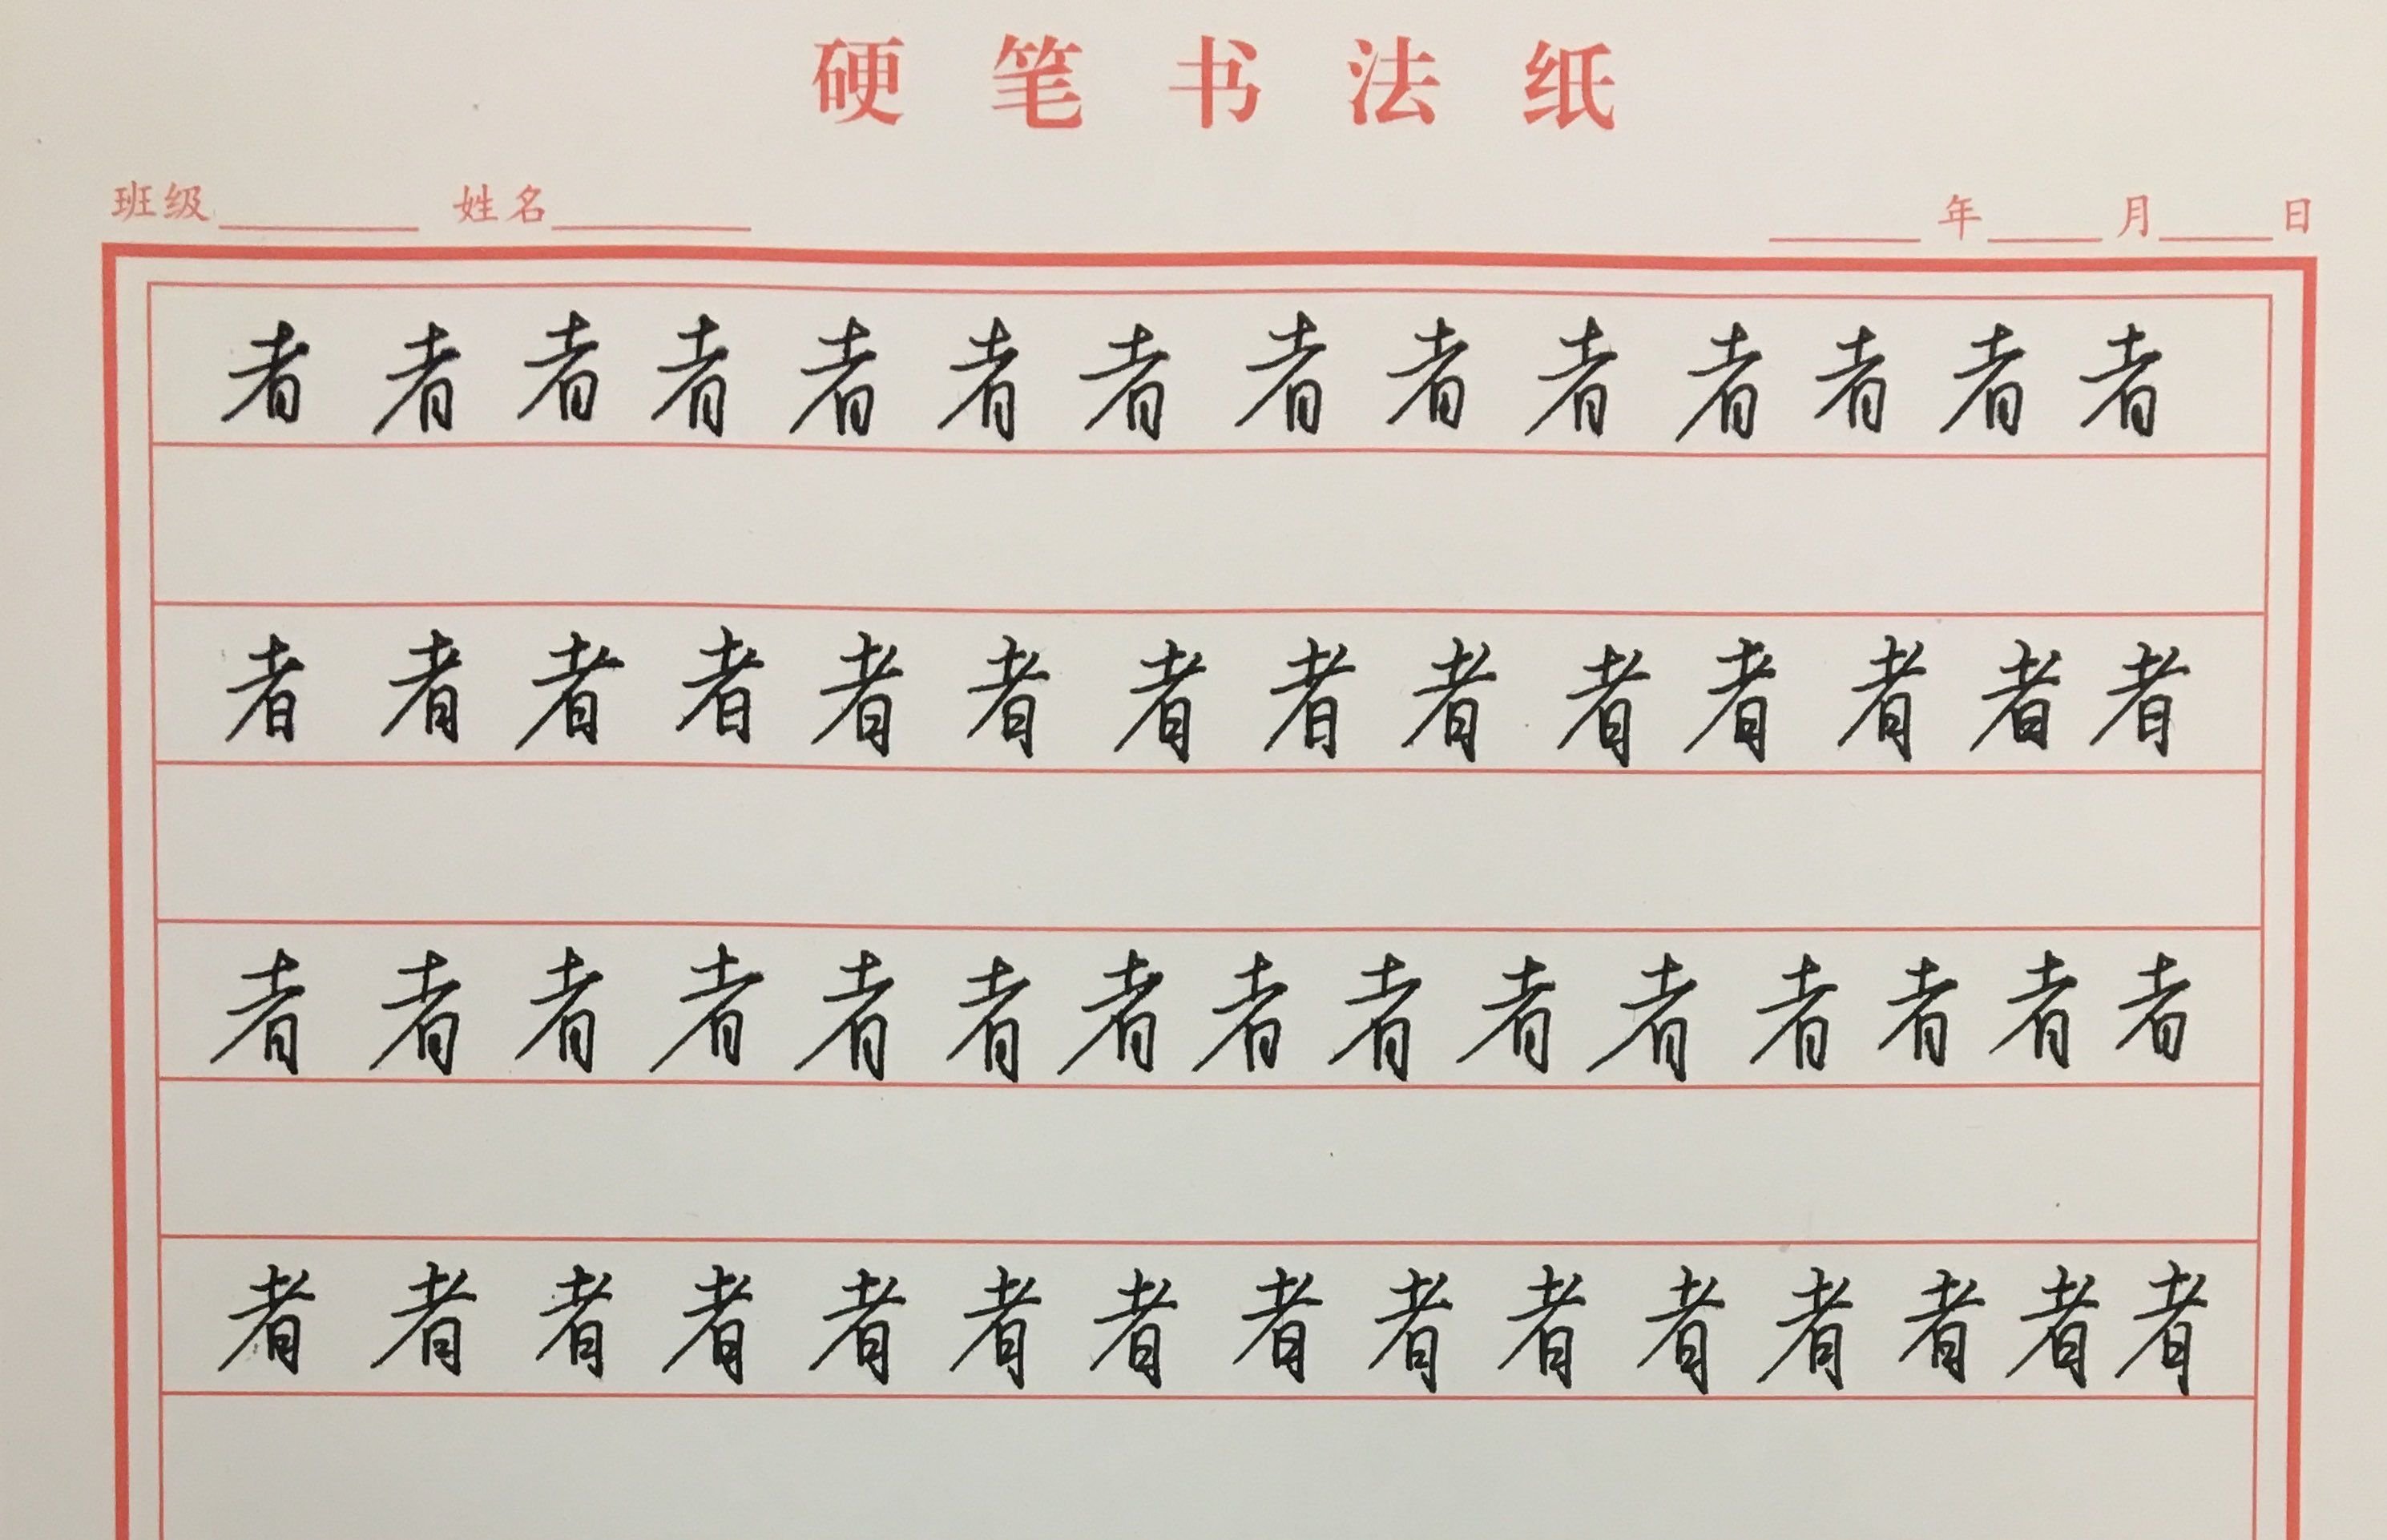 硬笔书法纸
班级 姓名 年 月 日
者者者者者者者者者者者者者者
者者者者者者者者者者者者者者
者者者者者者者者者者者者者者者
者者者者者者者者者者者者者者者